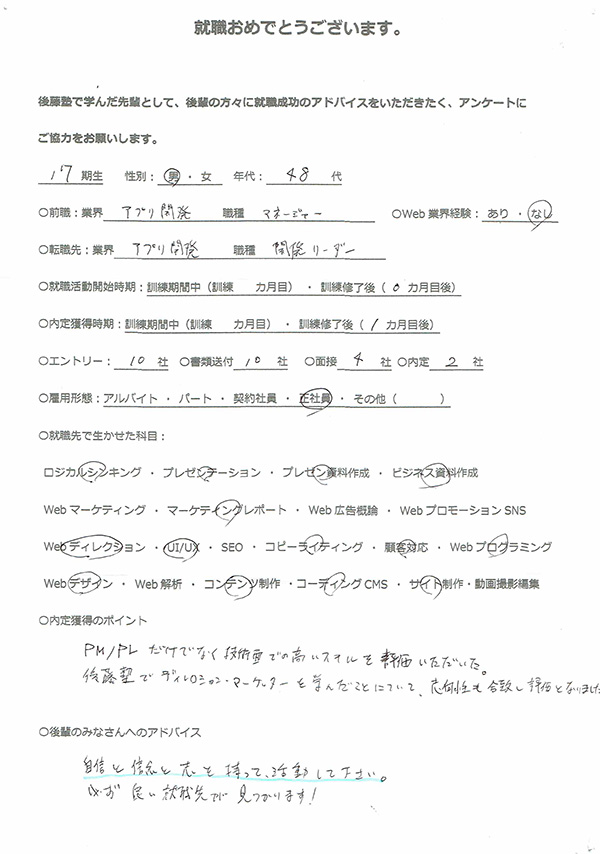 就職おめでとうございます。
後藤塾で学んだ先輩として、後輩の方々に就職成功のアドバイスをいただきたく、アンケートに
ご協力をお願いします。
17 期生 性別：男・女 年代：48 代
○前職：業界 アプリ開発 職種 マネージャー ○Web 業界経験：あり・なし
○転職先：業界 アプリ開発 職種 開発リーダー
○就職活動開始時期：訓練期間中（訓練 カ月目）・訓練修了後（0 カ月目後）
○内定獲得時期：訓練期間中（訓練 カ月目）・訓練修了後（1 カ月目後）
○エントリー：10 社 ○書類送付 10 社 ○面接 4 社 ○内定 2 社
○雇用形態：アルバイト・パート・契約社員・正社員・その他（ ）
○就職先で生かせた科目：
ロジカルシンキング・プレゼンテーション・プレゼン資料作成・ビジネス資料作成
Web マーケティング・マーケティングレポート・Web 広告概論・Web プロモーション SNS
Web ディレクション・UI/UX・SEO・コピーライティング・顧客対応・Web プログラミング
Web デザイン・Web 解析・コンテンツ制作・コーディング CMS・サイト制作・動画撮影編集
○内定獲得のポイント
PM/PL だけでなく技術面での高いスキルを評価いただいた。
後藤塾でディレクション・マーケターを学んだことについて、志向性も合致し評価となりました
○後輩のみなさんへのアドバイス
自信と信念と志を持って、活動して下さい。
必ず良い就職先が見つかります！